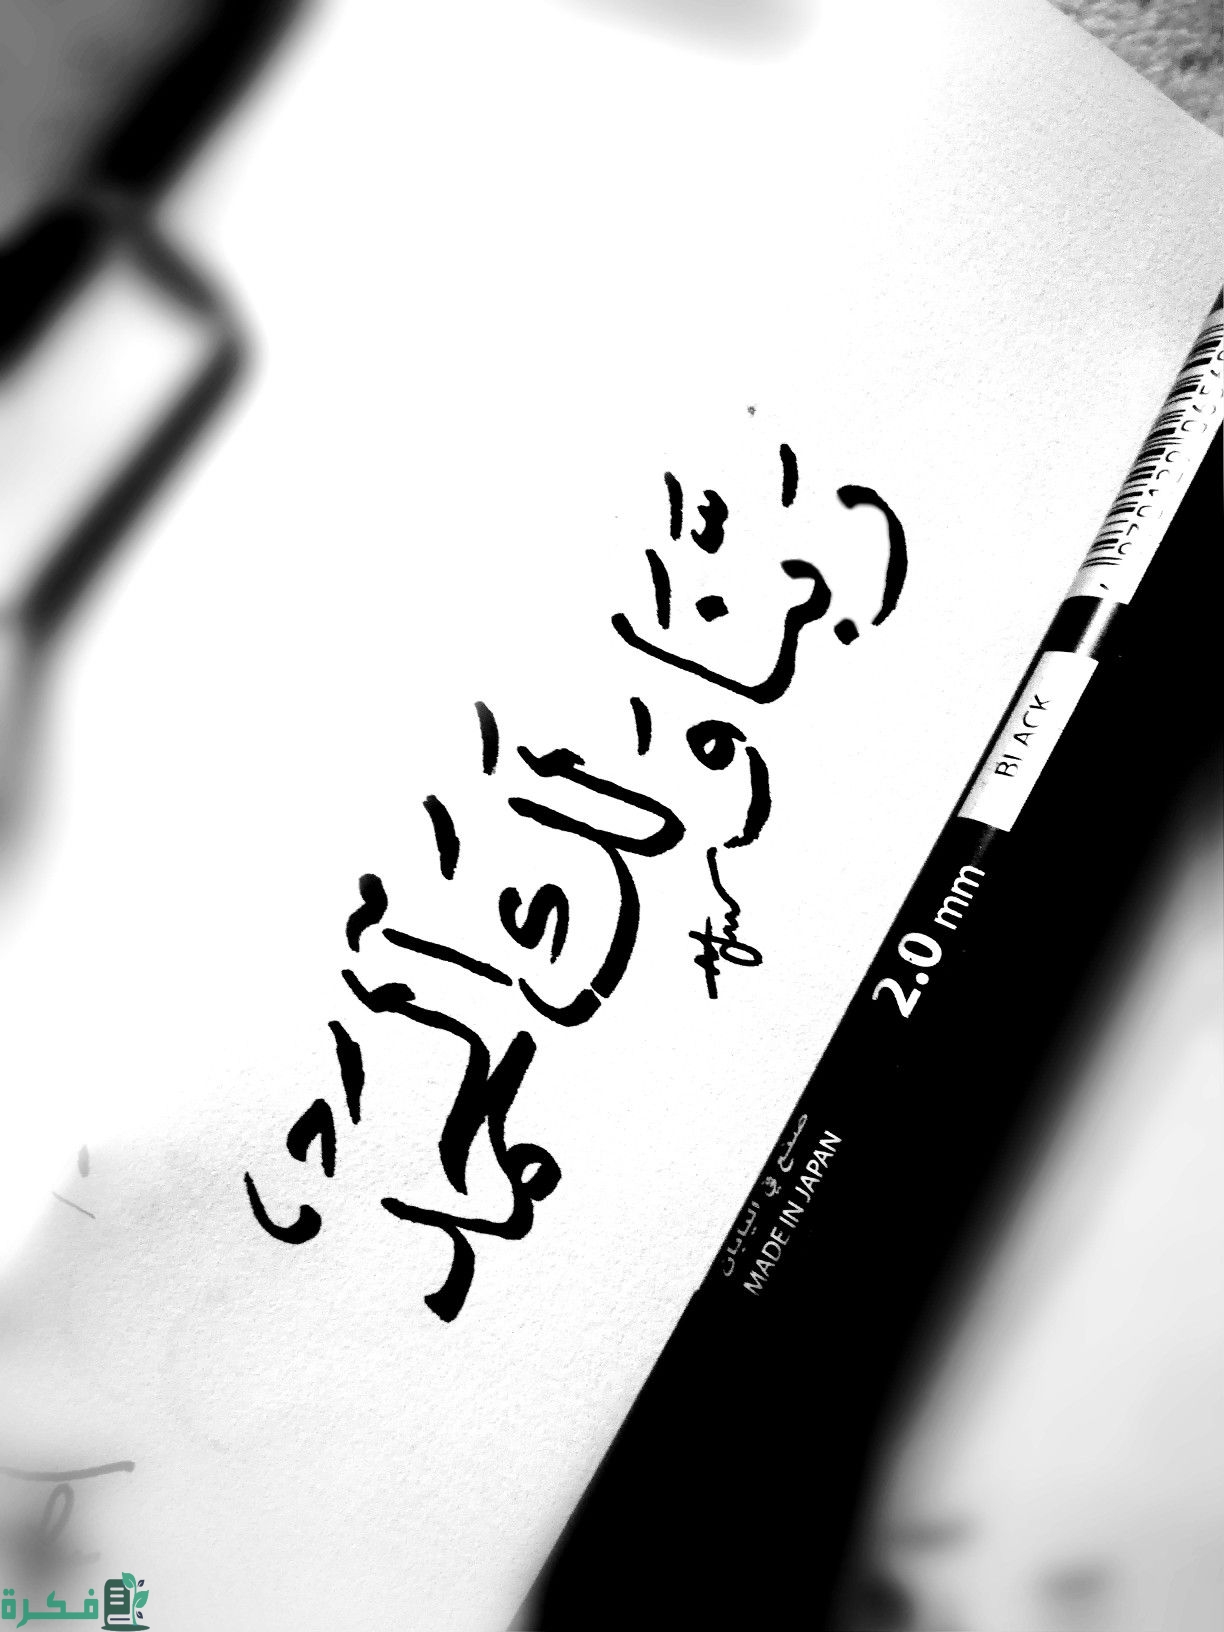 رَبَّنَا وَلَكَ ٱلْحَمْدُ
BLACK
2.0 mm
صنع في اليابان
MADE IN JAPAN
فكرة